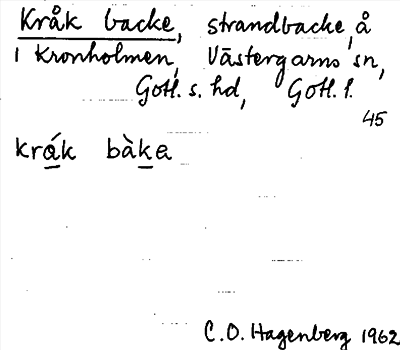 Kråk backe, strandbacke, å
i Kronholmen, Västergarns sn,
Gotl. s. hd, Gotl. l.
45
kråk bàka
C.O. Hagenberg 1962